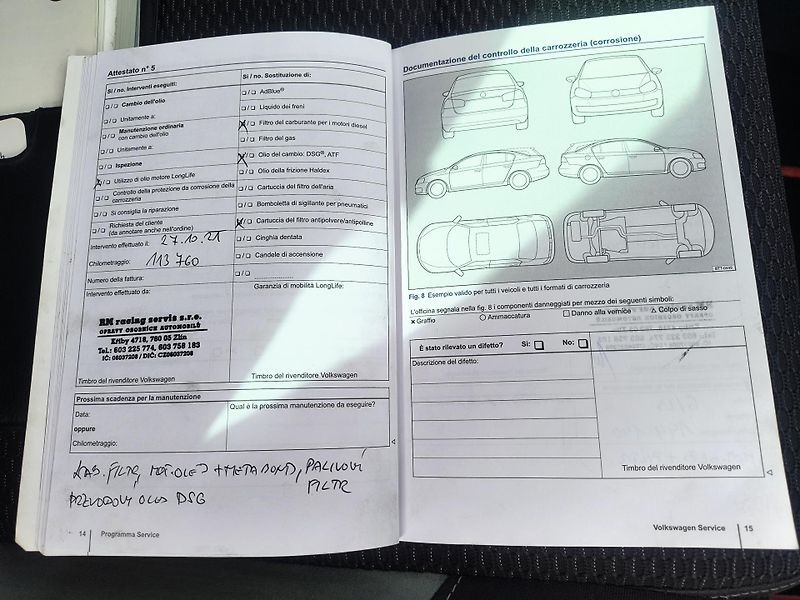 Attestato n° 5
Sì / no. Interventi eseguiti:
❑ / ❑ Cambio dell'olio
❑ / ❑ Unitamente a:
❑ / ❑ Manutenzione ordinaria
con cambio dell'olio
❑ / ❑ Unitamente a:
❑ / ❑ Ispezione
❑ / ❑ Utilizzo di olio motore LongLife
❑ / ❑ Controllo della protezione da corrosione della
carrozzeria
❑ / ❑ Si consiglia la riparazione
❑ / ❑ Richiesta del cliente
(da annotare anche nell'ordine)
Intervento effettuato il: 27.10.21
Chilometraggio: 113 760
Numero della fattura:
Intervento effettuato da:
RM racing servis s.r.o.
OPRAVY OSOBNÍCH AUTOMOBILŮ
Křiby 4718, 760 05 Zlín
Tel.: 603 225 774, 603 758 183
IČ: 06037208 / DIČ: CZ06037208
Timbro del rivenditore Volkswagen
Sì / no. Sostituzione di:
❑ / ❑ AdBlue®
❑ / ❑ Liquido dei freni
❑ / ❑ Filtro del carburante per i motori diesel
❑ / ❑ Filtro del gas
❑ / ❑ Olio del cambio: DSG®, ATF
❑ / ❑ Olio della frizione Haldex
❑ / ❑ Cartuccia del filtro dell'aria
❑ / ❑ Bomboletta di sigillante per pneumatici
❑ / ❑ Cartuccia del filtro antipolvere/antipolline
❑ / ❑ Cinghia dentata
❑ / ❑ Candele di accensione
❑ / ❑ ....................
Garanzia di mobilità LongLife:
Timbro del rivenditore Volkswagen
Prossima scadenza per la manutenzione
Data:
oppure
Chilometraggio:
Qual è la prossima manutenzione da eseguire?
KAB. FILTR, MOT. OLEJ + METABOND, PALIVOVÍ
FILTR
PŘEVODOVÝ OLEJ DSG
14 Programma Service
Documentazione del controllo della carrozzeria (corrosione)
Fig. 8 Esempio valido per tutti i veicoli e tutti i formati di carrozzeria
L'officina segnala nella fig. 8 i componenti danneggiati per mezzo dei seguenti simboli:
× Graffio ○ Ammaccatura □ Danno alla vernice △ Colpo di sasso
È stato rilevato un difetto? Sì: ❑ No: ❑
Descrizione del difetto:
Timbro del rivenditore Volkswagen
Volkswagen Service 15